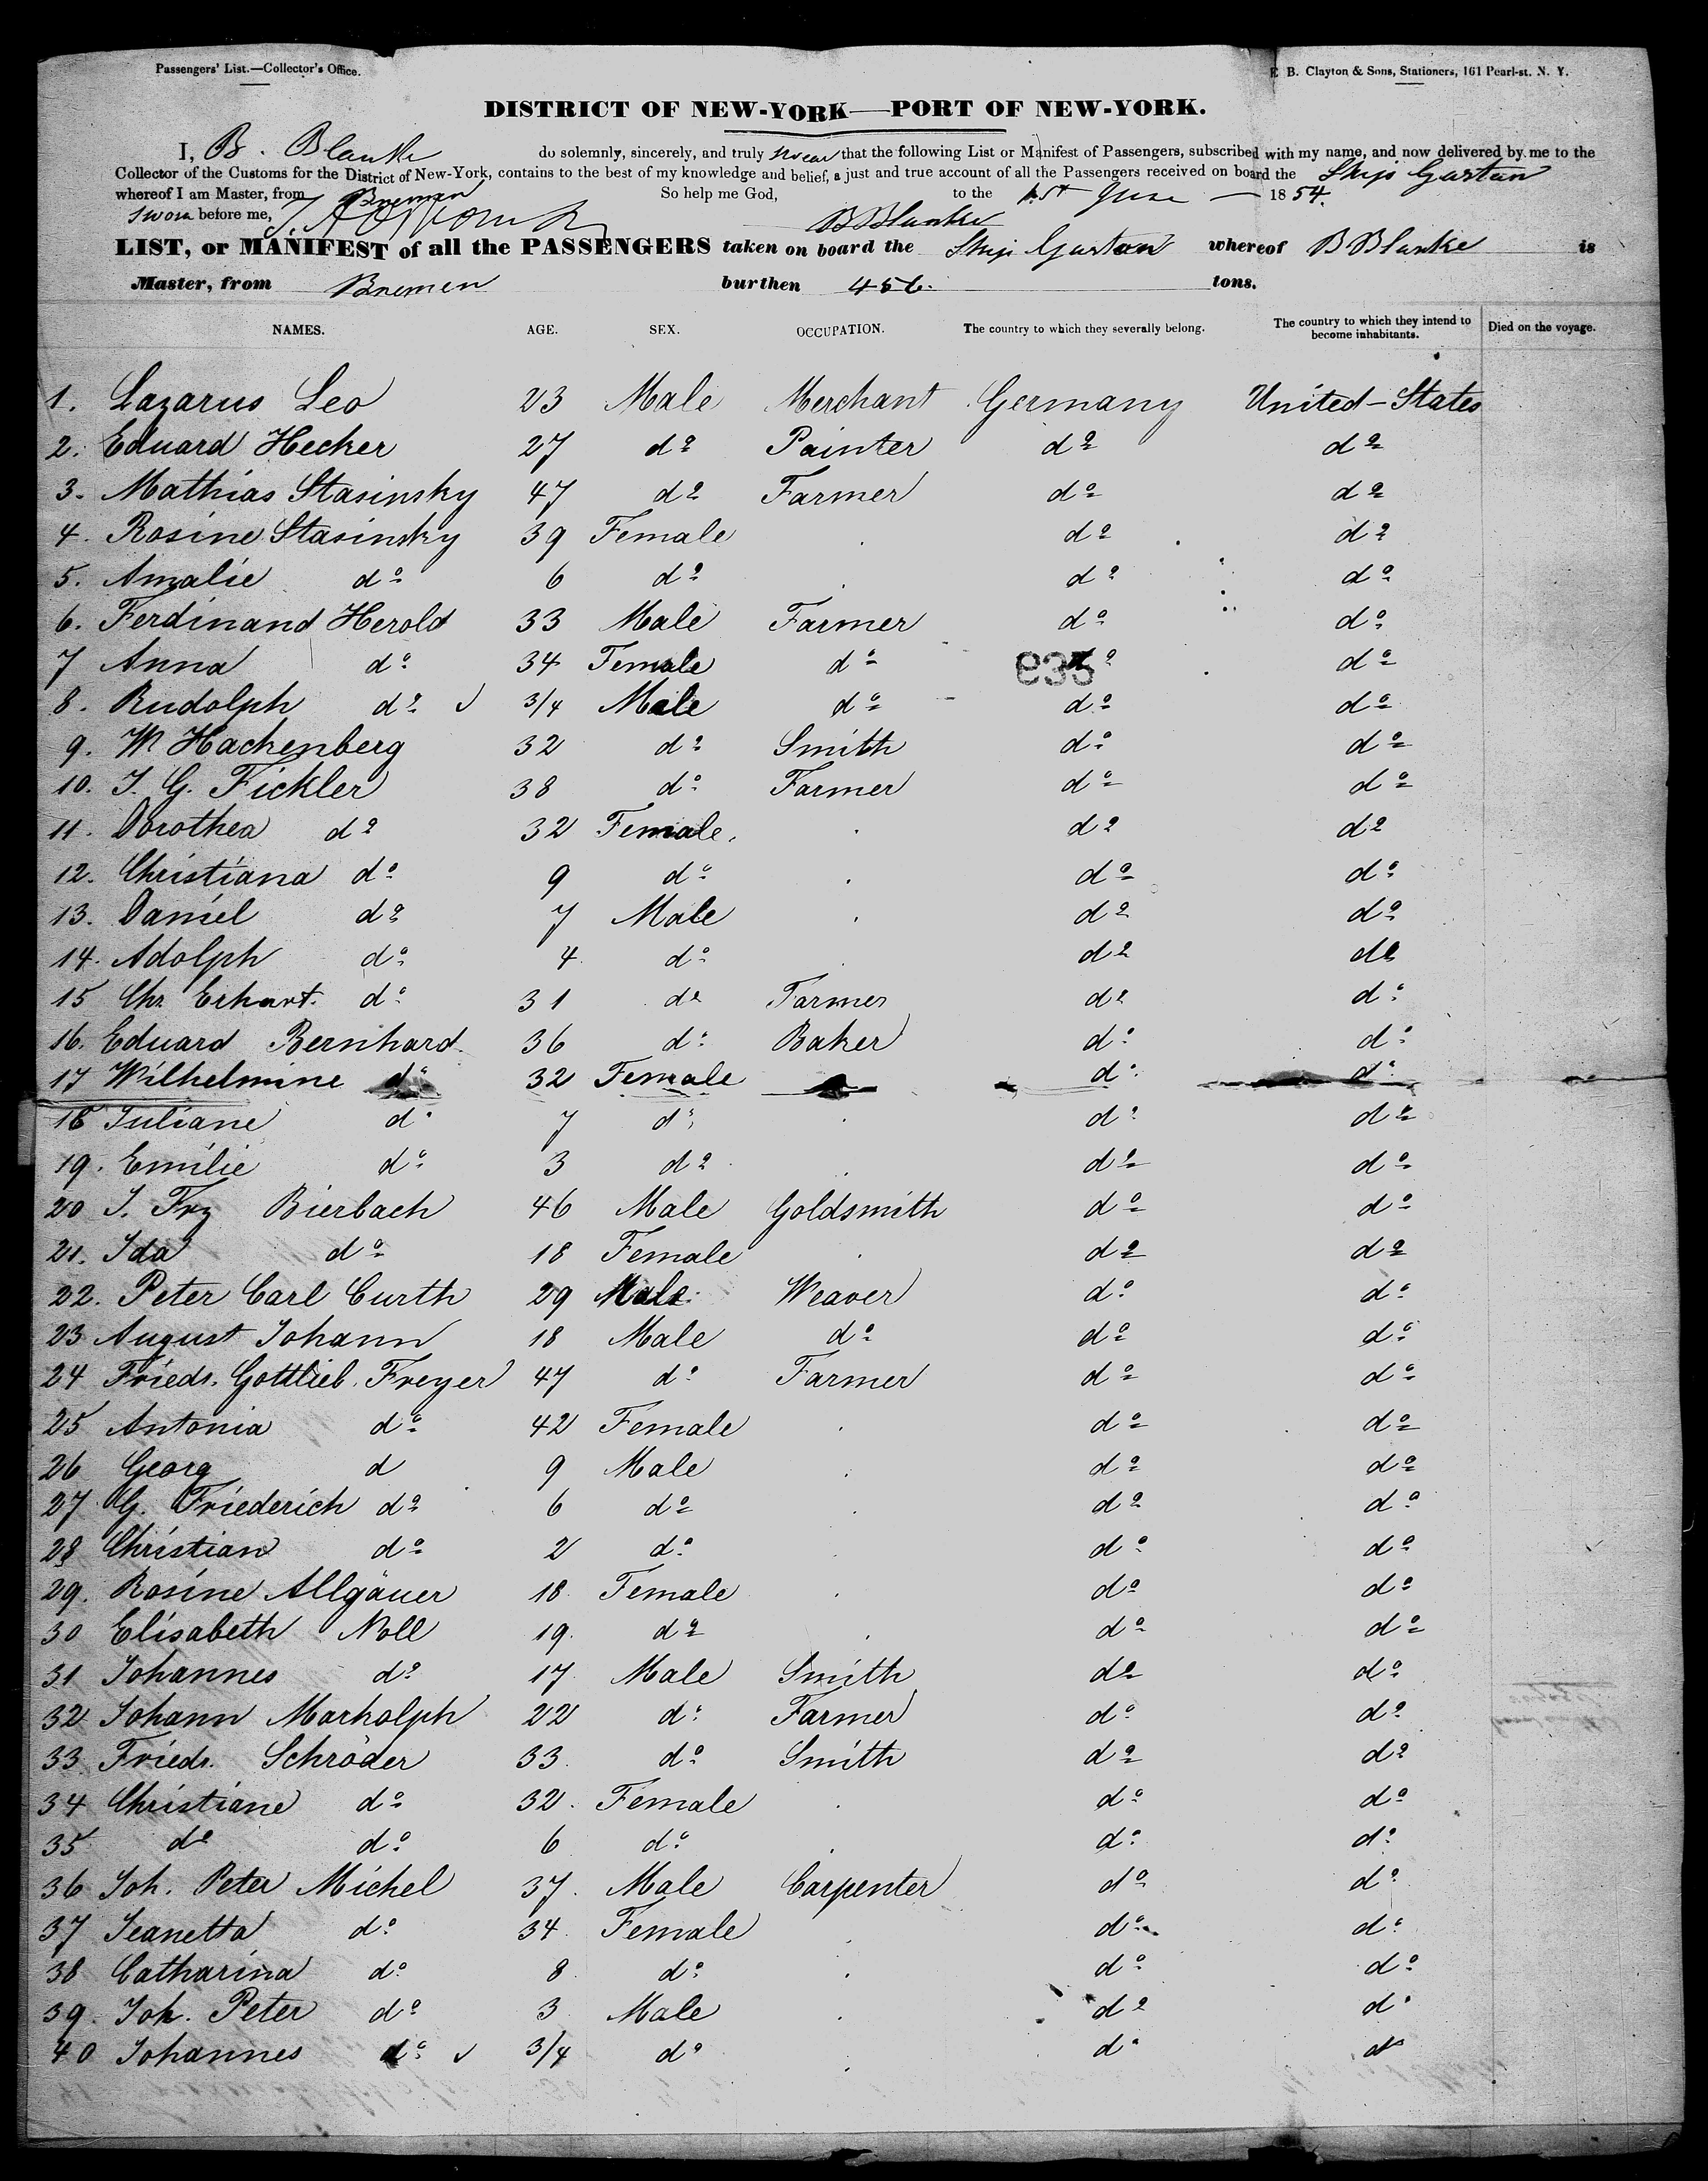 Passengers' List.—Collector's Office.
E. B. Clayton & Sons, Stationers, 161 Pearl-st. N. Y.
DISTRICT OF NEW-YORK—PORT OF NEW-YORK.
I, B. Blanke do solemnly, sincerely, and truly swear that the following List or Manifest of Passengers, subscribed with my name, and now delivered by me to the
Collector of the Customs for the District of New-York, contains to the best of my knowledge and belief, a just and true account of all the Passengers received on board the Ship Gaston
whereof I am Master, from Bremen So help me God, to the 1st June — 1854.
Sworn before me, B Blanke
LIST, or MANIFEST of all the PASSENGERS taken on board the Ship Gaston whereof B Blanke is
Master, from Bremen burthen 456. tons.
NAMES. AGE. SEX. OCCUPATION. The country to which they severally belong. The country to which they intend to become inhabitants. Died on the voyage.
1. Lazarus Leo 23 Male Merchant Germany United-States
2. Eduard Hecker 27 do Painter do do
3. Mathias Stasinsky 47 do Farmer do do
4. Rosine Stasinsky 39 Female do do
5. Amalie do 6 do do do
6. Ferdinand Herold 33 Male Farmer do do
7 Anna do 34 Female do do do
8. Rudolph do 3/4 Male do do do
9. W Hackenberg 32 do Smith do do
10. J. G. Fickler 38 do Farmer do do
11. Dorothea do 32 Female. do do
12. Christiana do 9 do do do
13. Daniel do 7 Male do do
14. Adolph do 4 do do do
15 Chr. Erhart. do 31 do Farmer do do
16. Eduard Bernhard 36 do Baker do do
17 Wilhelmine do 32 Female do do
18 Juliane do 7 do do do
19. Emilie do 3 do do do
20 J. Frz Bierbach 46 Male Goldsmith do do
21. Ida do 18 Female do do
22. Peter Carl Curth 29 Male Weaver do do
23 August Johann 18 Male do do do
24 Friedr. Gottlieb. Freyer 47 do Farmer do do
25 Antonia do 42 Female do do
26 Georg d 9 Male do do
27 G. Friederich do 6 do do do
28 Christian do 2 do do do
29. Rosine Allgäuer 18 Female do do
30 Elisabeth Noll 19. do do do
31 Johannes do 17 Male Smith do do
32 Johann Marholph 22 do Farmer do do
33 Friedr. Schröder 33. do Smith do do
34 Christiane do 32. Female do do
35 do do 6 do do do
36 Joh. Peter Michel 37. Male Carpenter do do
37 Jeanetta do 34 Female do do
38 Catharina do 8 do do do
39. Joh. Peter do 3 Male do do
40 Johannes do 3/4 do do do